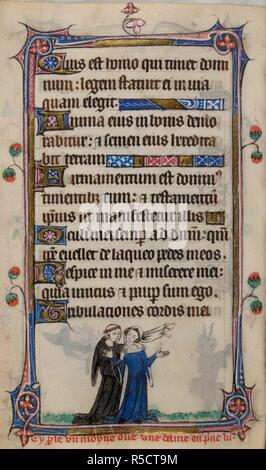 Quis est homo qui timet domi
num: legem statuit ei in via
quam elegit.
Anima eius in bonis demo
rabitur: & semen eius heredita
bit terram
Firmamentum est dominus
timentibus eum: & testamentum
ut manifestetur illis
Oculi mei semper ad dnm: qm
ipse evellet de laqueo pedes meos.
Respice in me & miserere mei:
quia unicus & paup sum ego.
Tribulationes cordis mei
Cy p le un moyne oue une dame
alamy
Image ID: R5CT9M
www.alamy.com